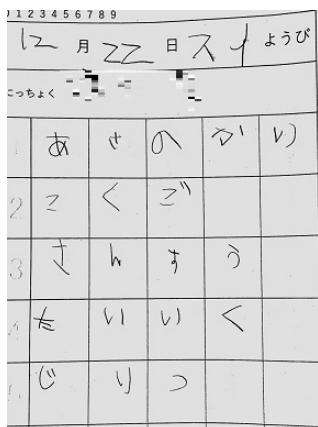 0 1 2 3 4 5 6 7 8 9
12月22日スイようび
にっちょく
1 あさのかい
2 こくご
3 さんすう
4 たいいく
5 じりつ